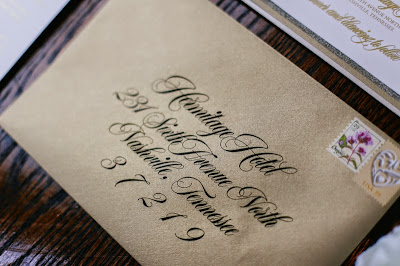 Hermitage Hotel
231 Sixth Avenue North
Nashville, Tennessee
37219